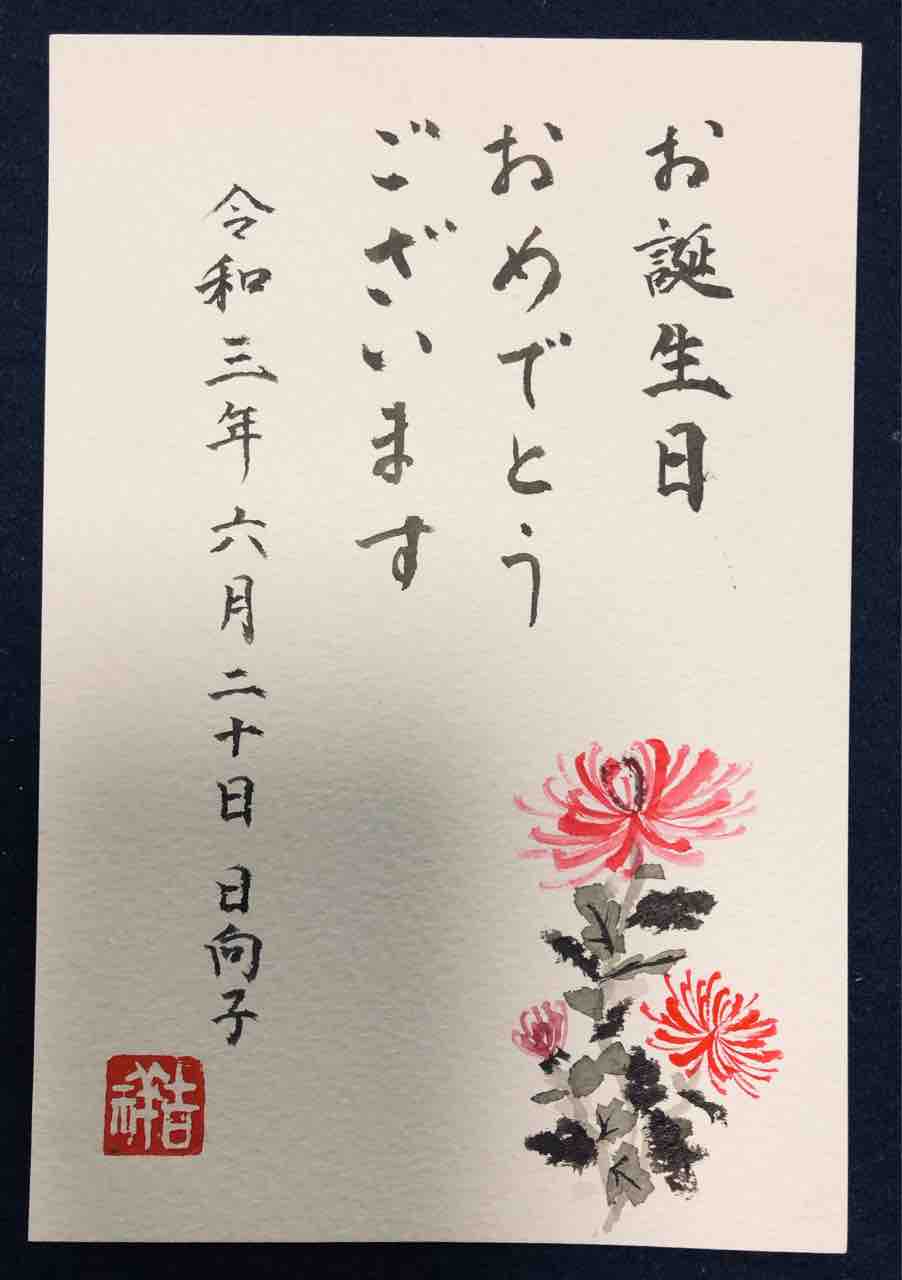 お誕生日
おめでとう
ございます
令和三年六月二十日 日向子
吉祥